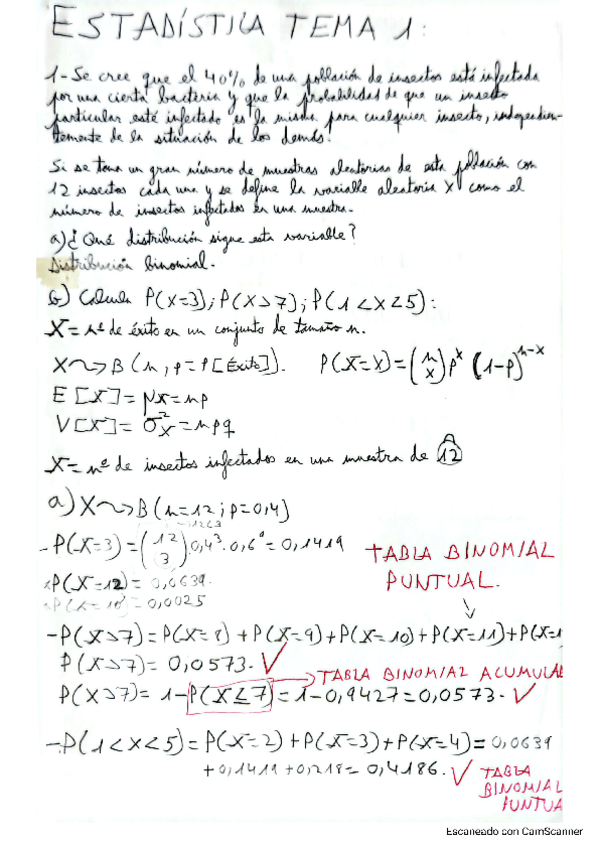 ESTADÍSTICA TEMA 1:
1-Se cree que el 40% de una población de insectos está infectada
por una cierta bacteria y que la probabilidad de que un insecto
particular esté infectado es la misma para cualquier insecto, independien-
temente de la situación de los demás.
Si se toma un gran número de muestras aleatorias de esta población con
12 insectos cada una y se define la variable aleatoria X como el
número de insectos infectados en una muestra.
a) ¿Qué distribución sigue esta variable?
Distribución binomial.
b) Calcula P(X=3); P(X>7); P(1<X<5):
X = nº de éxito en un conjunto de tamaño n.
X ~> B (n, p = P[Éxito]). P(X=x) = (n x) p^x (1-p)^n-x
E[X] = μx = np
V[X] = σ²x = npq
X = nº de insectos infectados en una muestra de 12
a) X ~> B(n=12; p=0,4)
-P(X=3) = (12 3) 0,4³ · 0,6⁹ = 0,1419
TABLA BINOMIAL
PUNTUAL.
P(X=12) = 0,0639.
P(X=10) = 0,0025
-P(X>7) = P(X=8) + P(X=9) + P(X=10) + P(X=11) + P(X=1
P(X>7) = 0,0573. ✓
→ TABLA BINOMIAL ACUMULAD
P(X>7) = 1 - P(X≤7) = 1 - 0,9427 = 0,0573. ✓
-P(1<X<5) = P(X=2) + P(X=3) + P(X=4) = 0,0639
+0,1419 + 0,218 = 0,4186. ✓
TABLA
BINOMIAL
PUNTUA
Escaneado con CamScanner